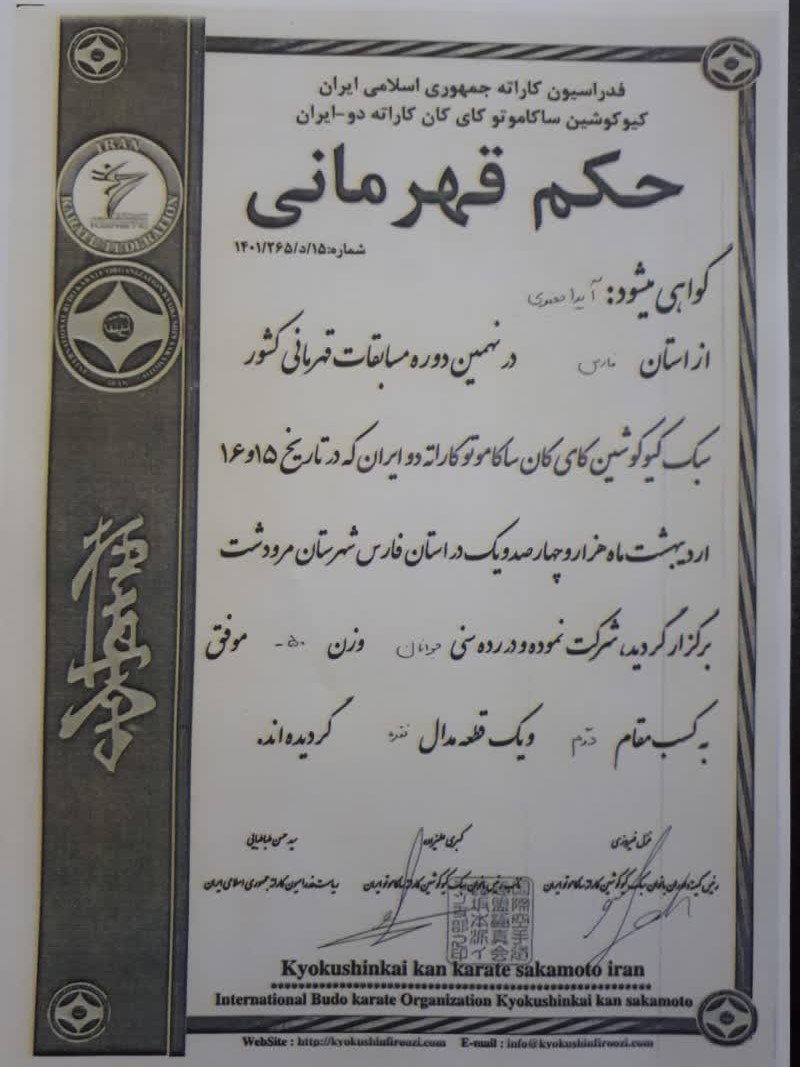 فدراسیون کاراته جمهوری اسلامی ایران
کیوکوشین ساکاموتو کای کان کاراته دو-ایران
حکم قهرمانی
شماره:۱۵/د/۱۴۰۱/۲۶۵
گواهی میشود: آیدا
از استان فارس در نهمین دوره مسابقات قهرمانی کشور
سبک کیوکوشین کای کان ساکاموتو کاراته دو ایران که در تاریخ ۱۵و۱۶
اردیبهشت ماه هزار و چهارصد و یک در استان فارس شهرستان مرودشت
برگزار گردید، شرکت نموده و در رده سنی جوانان وزن ۵۰- موفق
به کسب مقام دوم و یک قطعه مدال نقره گردیده اند.
غزل فیروزی
کبری علیزاده
سید حسن طباطبایی
ریاست فدراسیون کاراته جمهوری اسلامی ایران
IRAN
KARATE FEDERATION
Kyokushinkai kan karate sakamoto iran
International Budo karate Organization Kyokushinkai kan sakamoto
WebSite : http://kyokushinfiroozi.com E-mail : info@kyokushinfiroozi.com